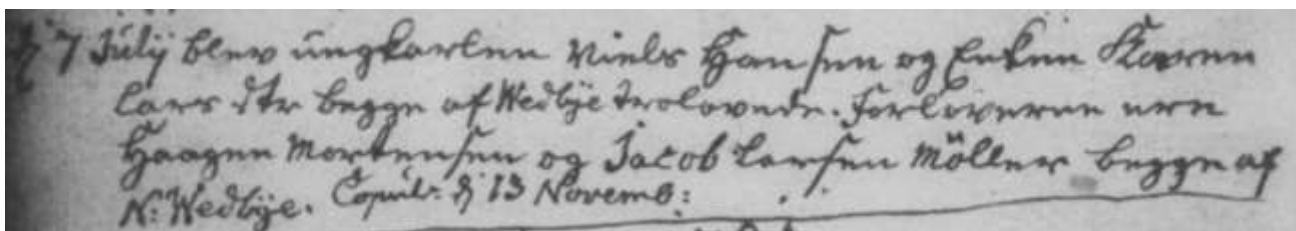 d 7 Julij blev ungkarlen Niels Hansen og Enken Karen
Lars dtr begge af Wedbÿe trolovede. Forloverne ere
Haagen Mortensen og Jacob Larsen Möller begge af
N: Wedbÿe. Copul: d 13 Novemb: